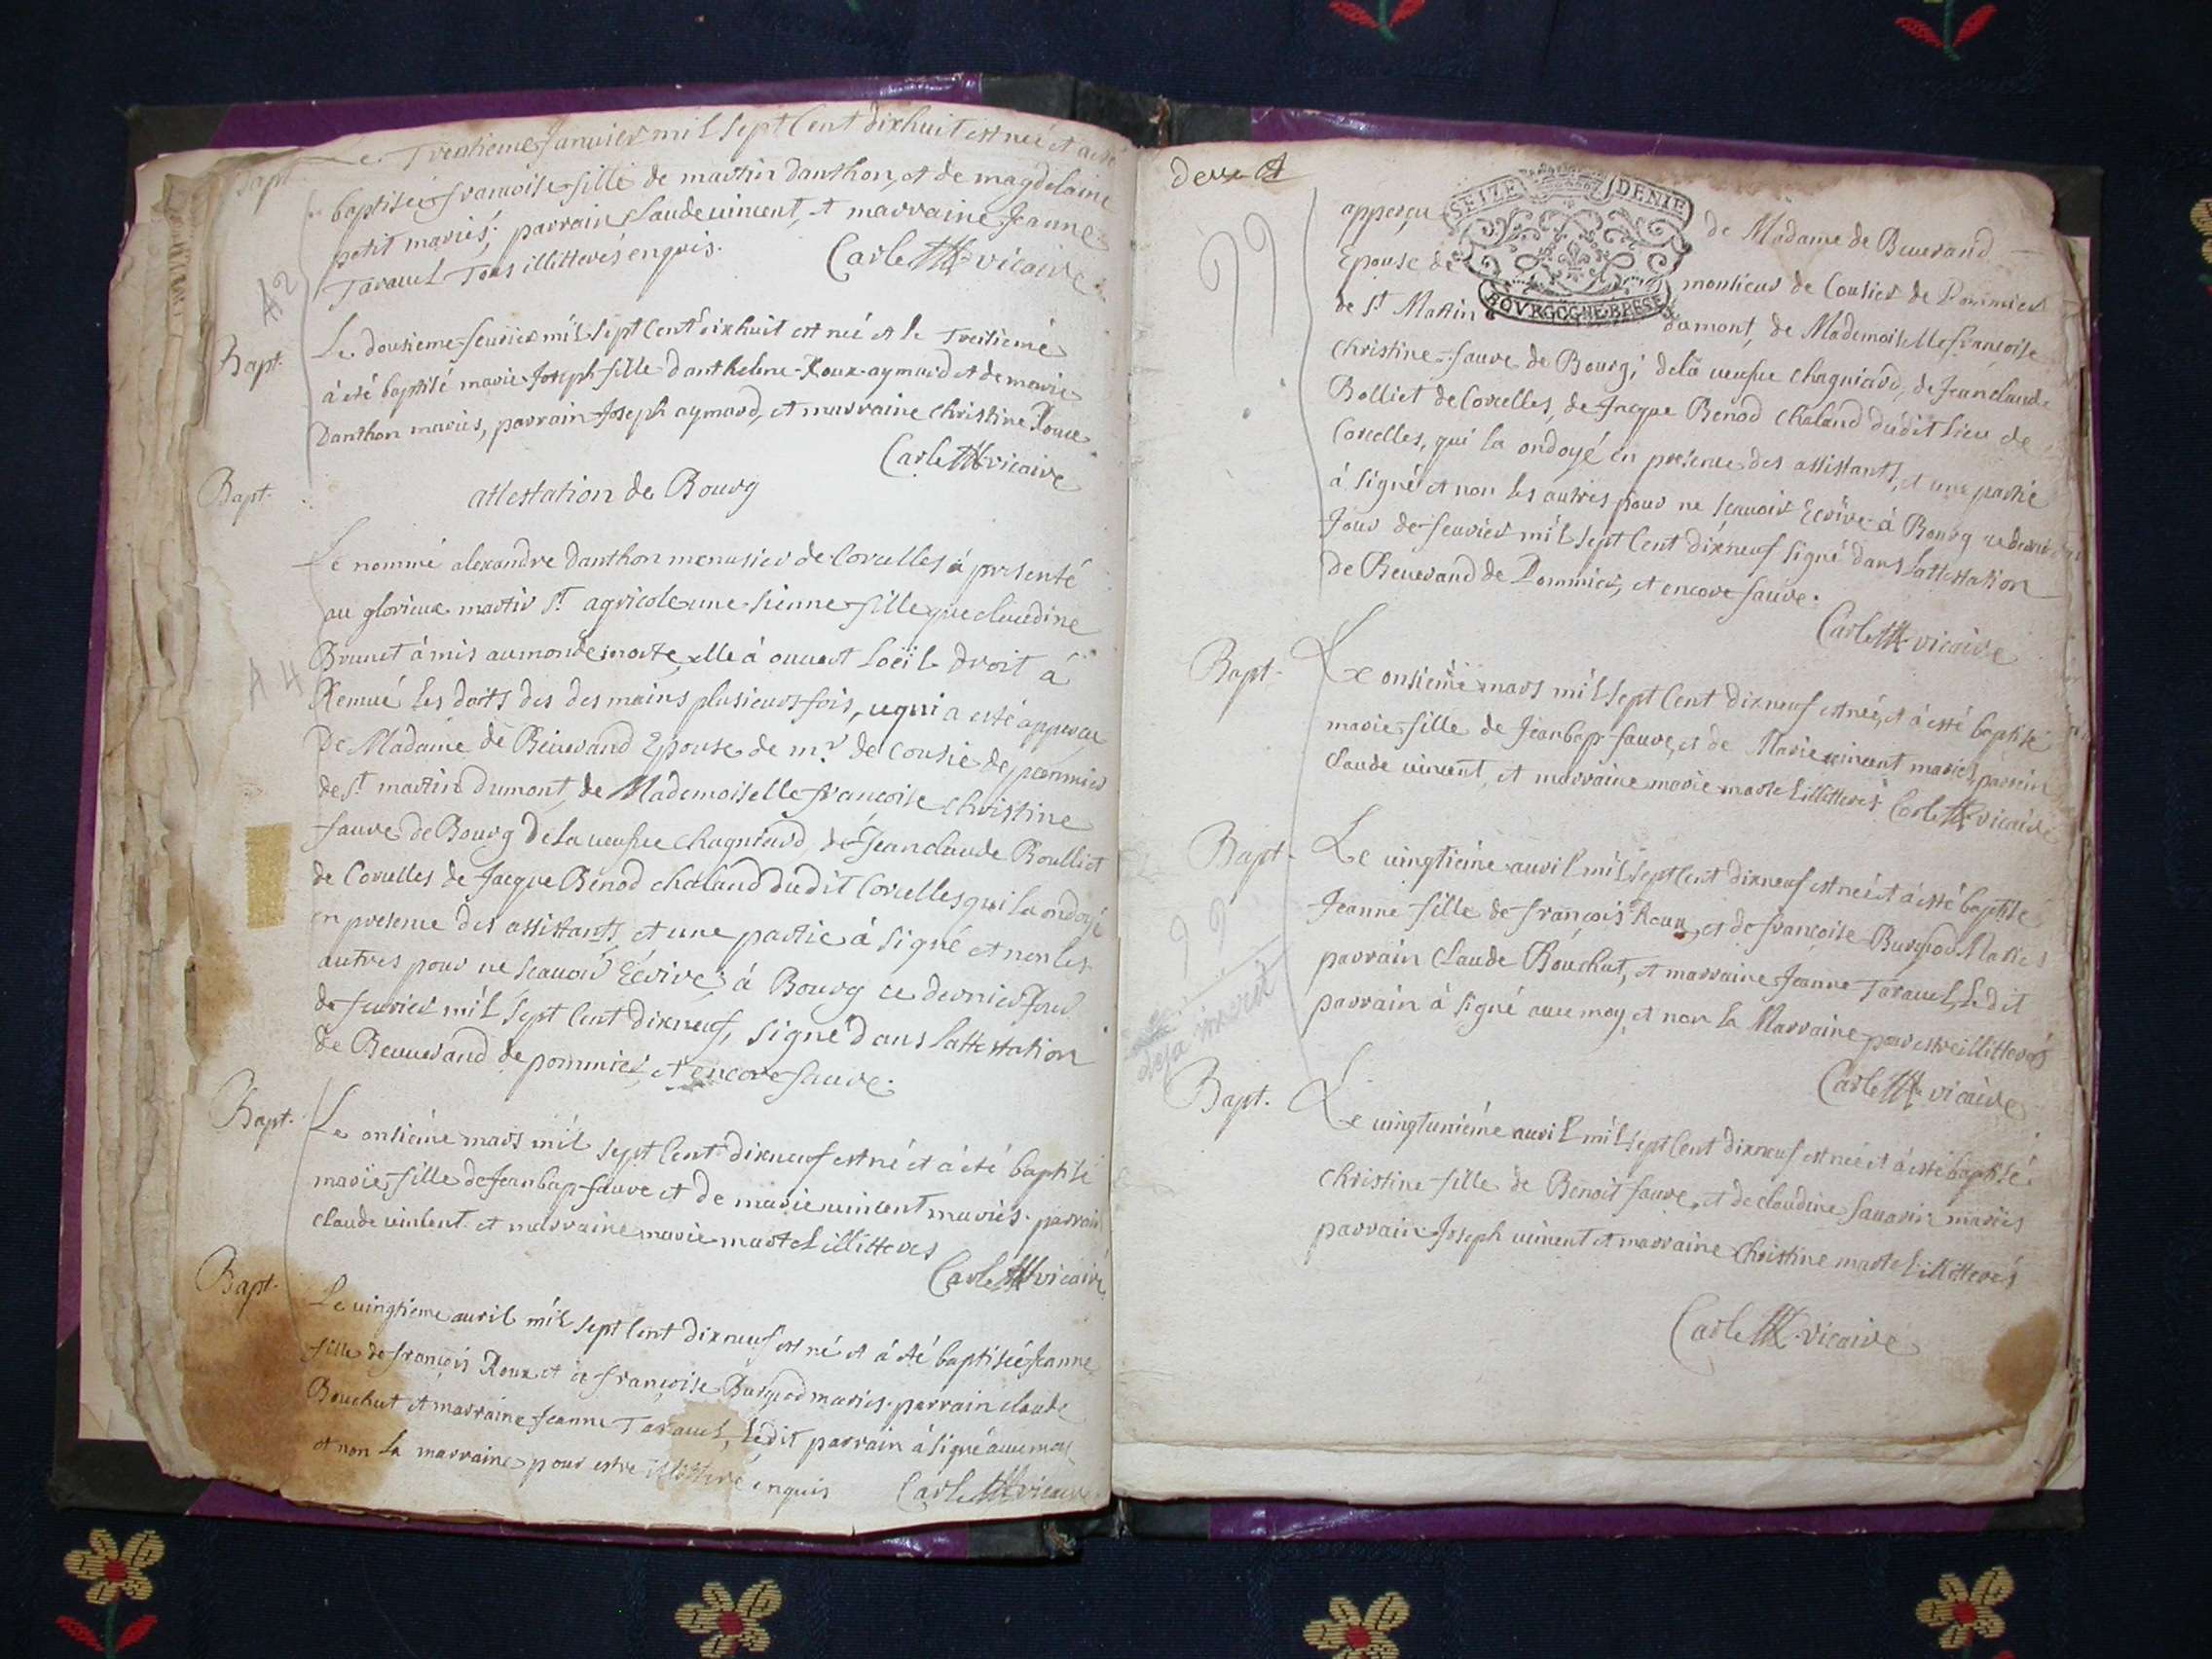 Bapt.
Le Trentieme Janvier mil sept Cent dixhuit est neé et a ete
baptiseé francoise fille de martin danthon, et de magdelaine
petit mariés; parrain Claude vincent, et marraine Jeanne
Taravel Tous illitterés enquis.
Carle vicaire
A 2
Bapt.
Le dousieme feuvrier mil sept Cent dixhuit est né et le Treisieme
à été baptisé marie Joseph fille danthelme Roux aymard et de marie
Danthon mariés, parrain Joseph aymard, et marraine christine Roux
Carle vicaire
Bapt.
attestation de Bourg
Le nommé alexandre danthon menusier de Corcelles à presenté
au glorieux martir St. agricole une sienne fille que claudine
Brunet à mis au monde morte, elle à ouvert loeil droit à
A 4
Remué les doits des des mains plusieurs fois, ce qui a esté apperceu
De Madame de Beuverand Epouse de mr. de Cousie de pommier
de st martin dumont, de Mademoiselle françoise christine
fauve de Bourg de la veufve chagniard, de Jean claude Boulliet
de Corcelles de Jacque Benod chaland dudit Corcelles qui la ondoyé
en presence des assistants, et une partie à signé et non les
autres pour ne scauoir Ecrire, à Bourg ce dernier Jour
de feuvrier mil sept Cent dixneuf, signé dans lattestation
de Beuverand de pommier, et encore fauve.
Bapt.
Le onsiéme mars mil sept Cent dixneuf est né et à été baptisé
marie fille de Jean bap fauve et de marie vincent mariés. parrain
Claude vincent et marraine marie martel illitterés
Carle vicaire
Bapt.
Le vingtieme auril mil sept Cent dixneuf est né et à été baptiseé Jeanne
fille de françois Roux et de françoise Burgiod mariés. parrain claude
Bouchut et marraine Jeanne Taravel, Ledit parrain à signé auec moy
et non la marraine pour estre illitterée enquis
Carle vicaire
deux
99
apperçu de Madame de Beuverand
SEIZE DENIE
Epouse de monsieur de Cousier de Pommier
BOVRGOGNE BRESSE
de St. Martin dumont, de Mademoiselle françoise
christine fauve de Bourg; dela veufve chagniard, de Jean claude
Bolliet de Corcelles, de Jacque Benod chaland dudit lieu de
Corcelles, qui la ondoyé en presence des assistants, et une partie
à signé et non les autres pour ne scauoir Ecrire à Bourg ce dernier
Jour de feuvrier mil sept Cent dixneuf signé dans lattestation
de Beuverand de Pommier, et encore fauve.
Carle vicaire
Bapt.
Le onsiéme mars mil sept Cent dixneuf est née, et à esté baptisé
marie fille de Jean bap fauve, et de Marie vincent mariés, parrein
Claude vincent, et marraine marie martel illitterés Carle vicaire
Bapt.
Le vingtiéme auril mil sept Cent dixneuf est neé et à esté baptisé
Jeanne fille de françois Roux, et de francoise Burgiod Mariés
99
parrain Claude Bouchut, et marraine Jeanne Taravel, Ledit
deja inscrit
parrain à signé auec moy, et non la Marraine pour estre illitterés
Carle vicaire
Bapt.
Le vingtuniéme auril mil sept Cent dixneuf est neé et à esté baptisé
christine fille de Benoit fauve, et de claudine sauarin mariés
parrain Joseph vincent et marraine Christine martel illitterés
Carle vicaire